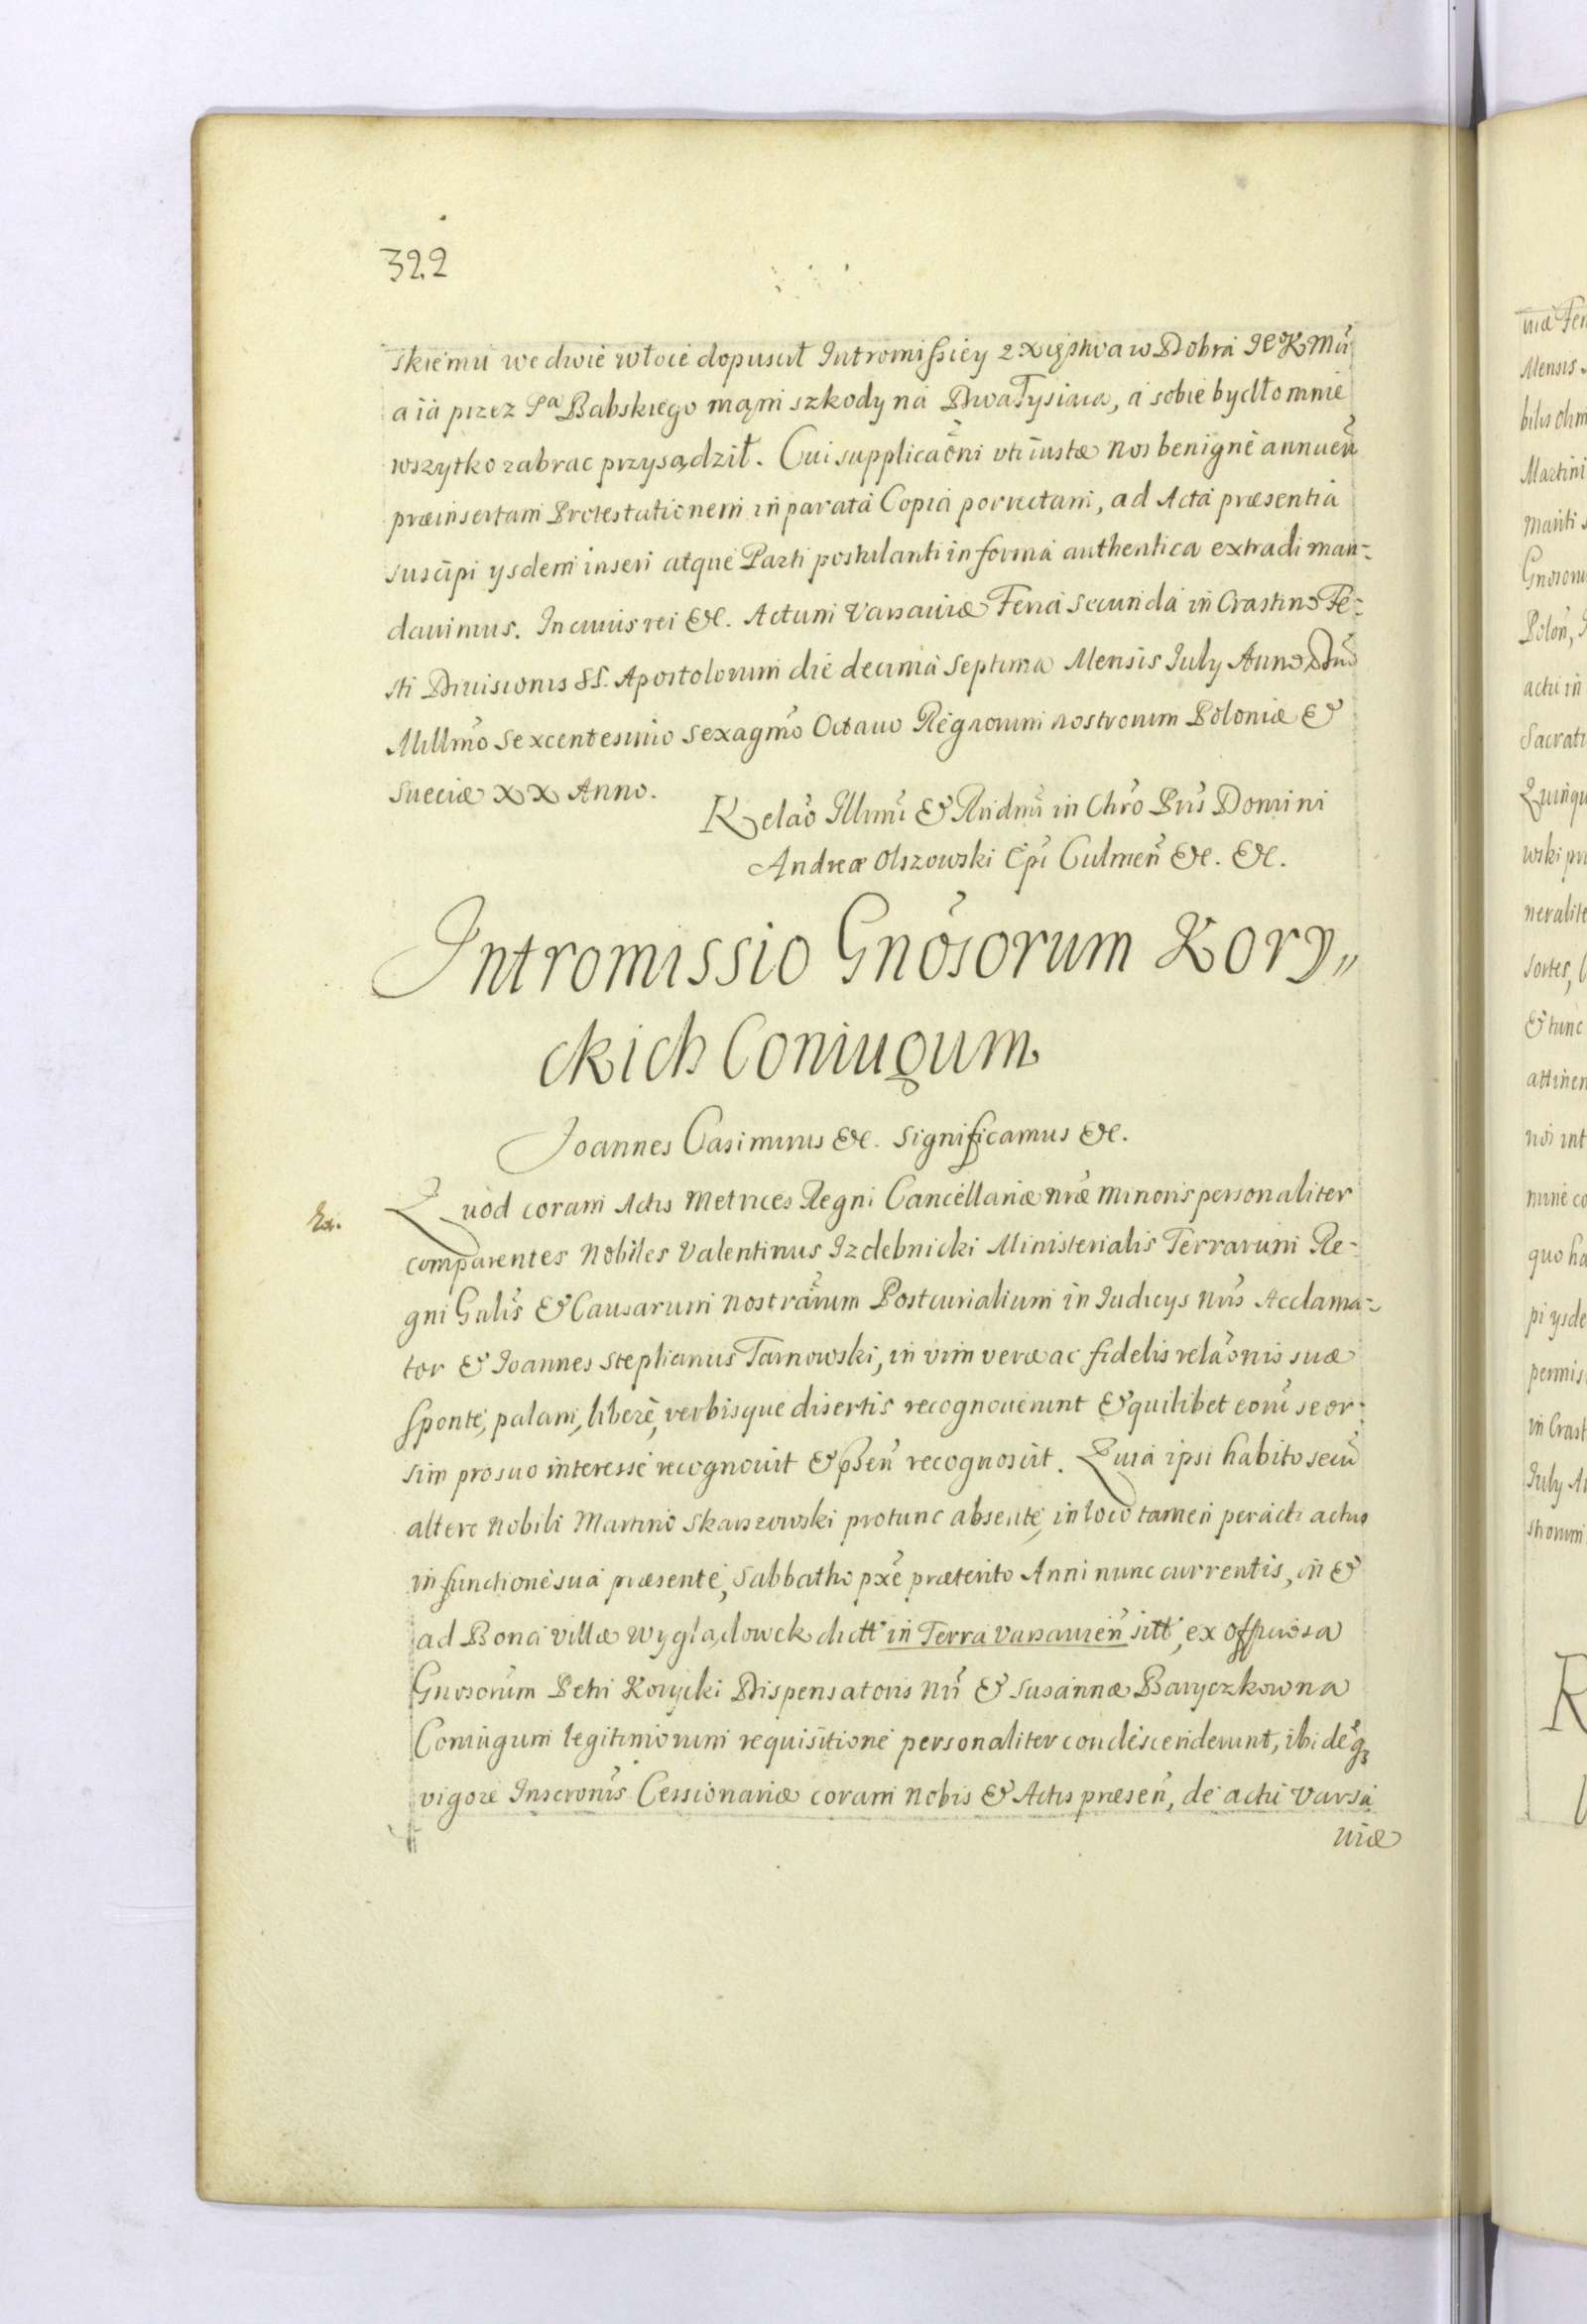 322
skiemu we dwie włoce dopuscił Intromissiey z Xięstwa w Dobra Je° K Mci
a ia przez Pa Babskiego mąm szkody na Dwa Tysiaca, a sobie bydło mnie
wszytko zabrac przysądził. Cui supplicaõni uti iustæ nos benignè annuen
præinsertam Protestationem in parata Copia porrectam, ad Acta præsentia
suscipi ysdem inseri atque Parti postulanti in forma authentica extradi man-
dauimus. In cuius rei &c. Actum Varsauiæ Feria secunda in Crastino Fe-
sti Diuisionis SS. Apostolorum die decima septima Mensis July Anno Dni
Millmo Sexcentesimo Sexagmo Octauo Regnorum nostrorum Poloniæ &
Sueciæ XX Anno.
Relao Illmi & Rndmi in Chro Pris Domini
Andreæ Olszowski Epi Culmen &c. &c.
Intromissio Gnosorum Kory„
ckich Coniugum
Joannes Casimirus &c. Significamus &c.
Ex.
Quod coram Actis Metrices Regni Cancellariæ nræ Minoris personaliter
comparentes Nobiles Valentinus Izdebnicki Ministerialis Terrarum Re-
gni Gnlis & Causarum nostrarum Postcurialium in Iudicys nris Acclama-
tor & Joannes Stephanus Tarnowski, in vim veræ ac fidelis relaonis suæ
sponte, palam, liberè, verbisque disertis recognouerunt & quilibet eoru seor-
sim pro suo interesse recognouit & psen recognoscit. Quia ipsi habito secu
altero Nobili Martino Skarszowski protunc absente, in loco tamen peracti actus
in functione sua præsente, Sabbatho pxe præterito Anni nunc currentis, in &
ad Bona villæ Wyglądowek dictt in Terra Varsauien sitt, ex officiosa
Gnosorum Petri Korycki Dispensatoris Nri & Susannæ Baryczkowna
Coniugum legitimorum requisitione personaliter condescenderunt, ibideq3
vigore Inscronis Cessionariæ coram Nobis & Actis præsen, de actu Varsa
uiæ